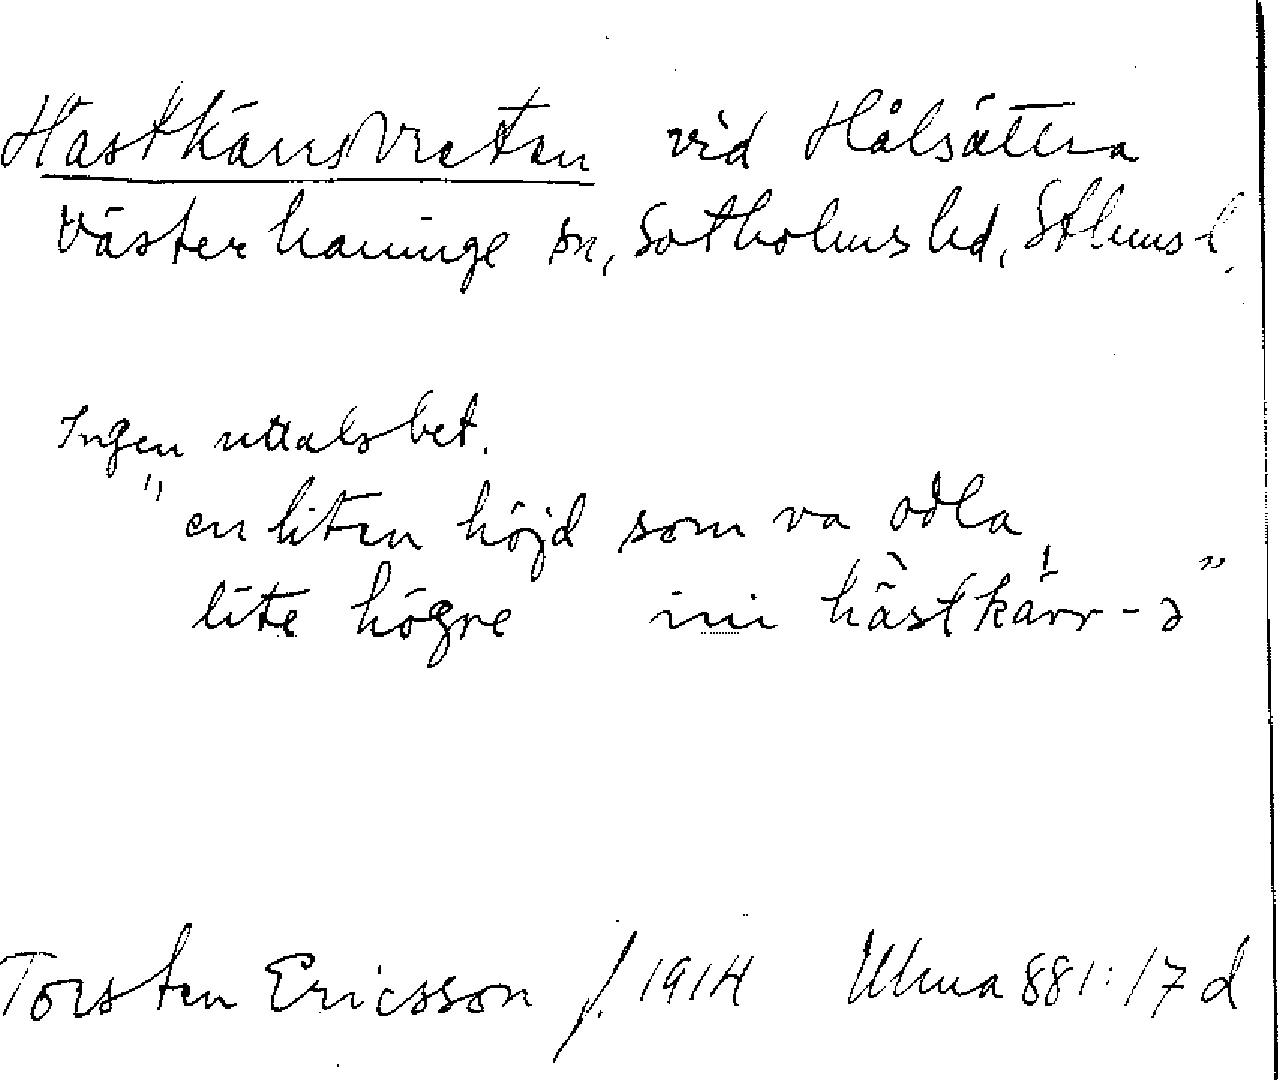 Hästkärrsvreten vid Hålsättra
Västerhaninge sn, Sotholms hd, Sthms l.
Ingen uttalsbet.
" en liten höjd som va odla
lite högre inni hästkärr-ə "
Torsten Ericsson f. 1914 Uluma 881:17 d